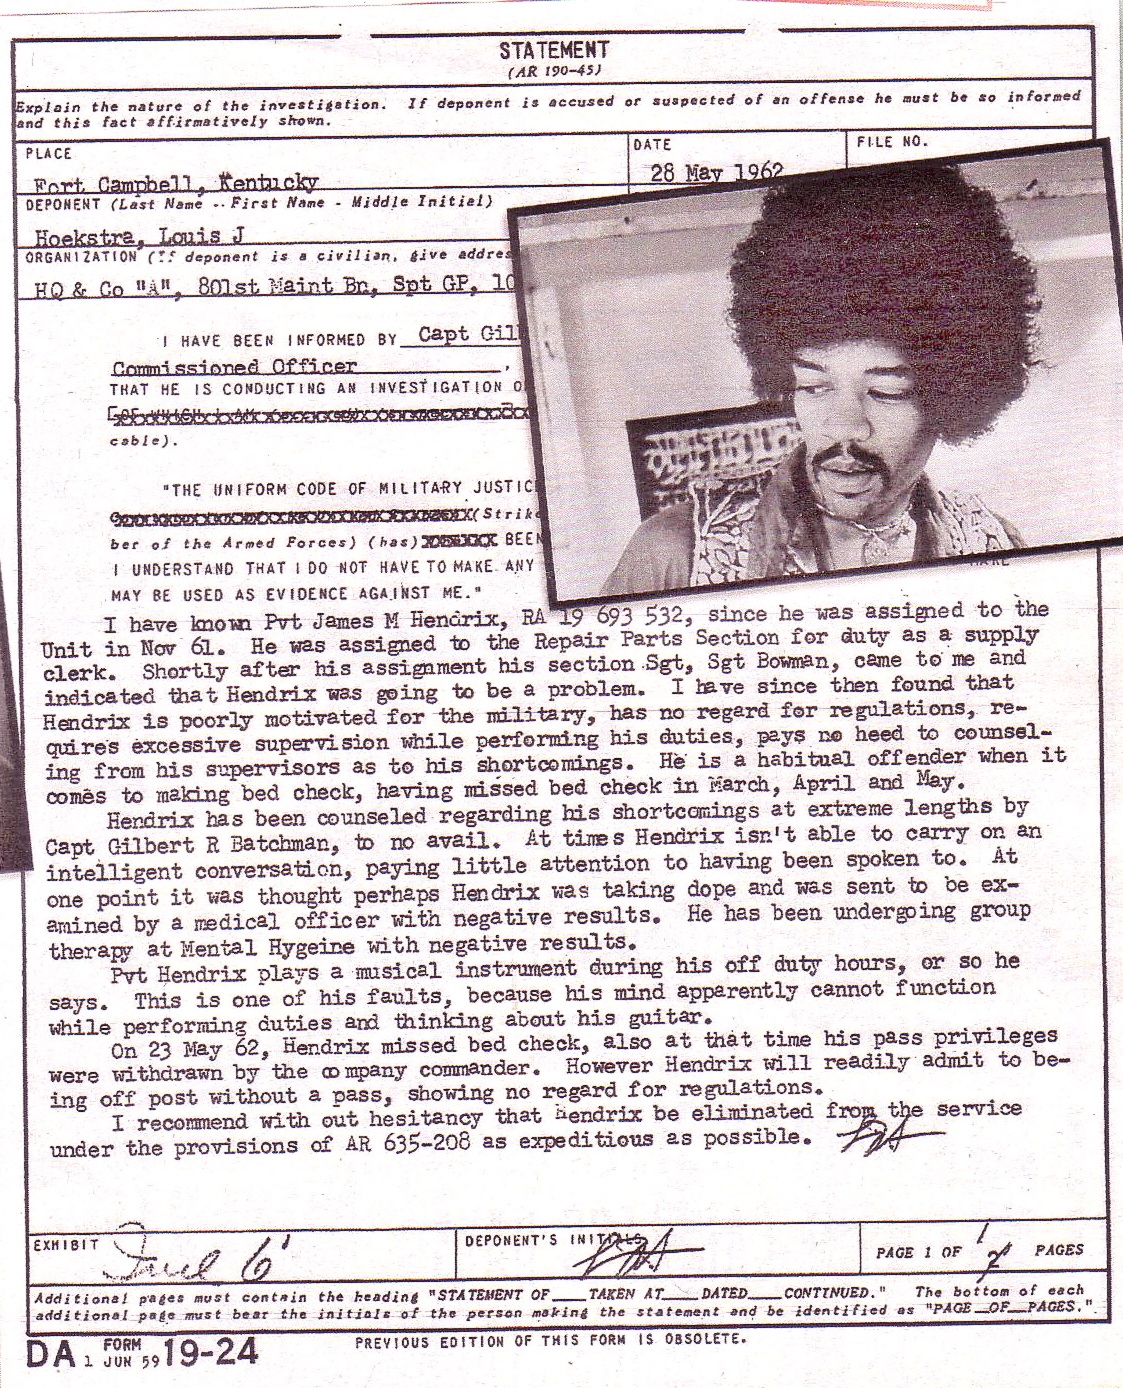 STATEMENT
(AR 190-45)
Explain the nature of the investigation. If deponent is accused or suspected of an offense he must be so informed
and this fact affirmatively shown.
PLACE
DATE
FILE NO.
Fort Campbell, Kentucky
28 May 1962
DEPONENT (Last Name -- First Name - Middle Initial)
Hoekstra, Louis J
ORGANIZATION (If deponent is a civilian, give addres
HQ & Co "A", 801st Maint Bn, Spt GP, 10
I HAVE BEEN INFORMED BY Capt Gil
Commissioned Officer ,
THAT HE IS CONDUCTING AN INVESTIGATION O
cable).
"THE UNIFORM CODE OF MILITARY JUSTIC
(Strike
ber of the Armed Forces) (has) BEEN
I UNDERSTAND THAT I DO NOT HAVE TO MAKE ANY
MAY BE USED AS EVIDENCE AGAINST ME."
I have known Pvt James M Hendrix, RA 19 693 532, since he was assigned to the
Unit in Nov 61. He was assigned to the Repair Parts Section for duty as a supply
clerk. Shortly after his assignment his section Sgt, Sgt Bowman, came to me and
indicated that Hendrix was going to be a problem. I have since then found that
Hendrix is poorly motivated for the military, has no regard for regulations, re-
quires excessive supervision while performing his duties, pays no heed to counsel-
ing from his supervisors as to his shortcomings. He is a habitual offender when it
comes to making bed check, having missed bed check in March, April and May.
Hendrix has been counseled regarding his shortcomings at extreme lengths by
Capt Gilbert R Batchman, to no avail. At times Hendrix isn't able to carry on an
intelligent conversation, paying little attention to having been spoken to. At
one point it was thought perhaps Hendrix was taking dope and was sent to be ex-
amined by a medical officer with negative results. He has been undergoing group
therapy at Mental Hygeine with negative results.
Pvt Hendrix plays a musical instrument during his off duty hours, or so he
says. This is one of his faults, because his mind apparently cannot function
while performing duties and thinking about his guitar.
On 23 May 62, Hendrix missed bed check, also at that time his pass privileges
were withdrawn by the company commander. However Hendrix will readily admit to be-
ing off post without a pass, showing no regard for regulations.
I recommend with out hesitancy that Hendrix be eliminated from the service
under the provisions of AR 635-208 as expeditious as possible.
EXHIBIT
DEPONENT'S INITIALS
PAGE 1 OF 1 PAGES
Additional pages must contain the heading "STATEMENT OF____TAKEN AT____DATED____CONTINUED." The bottom of each
additional page must bear the initials of the person making the statement and be identified as "PAGE__OF__PAGES."
DA FORM 1 JUN 59 19-24
PREVIOUS EDITION OF THIS FORM IS OBSOLETE.